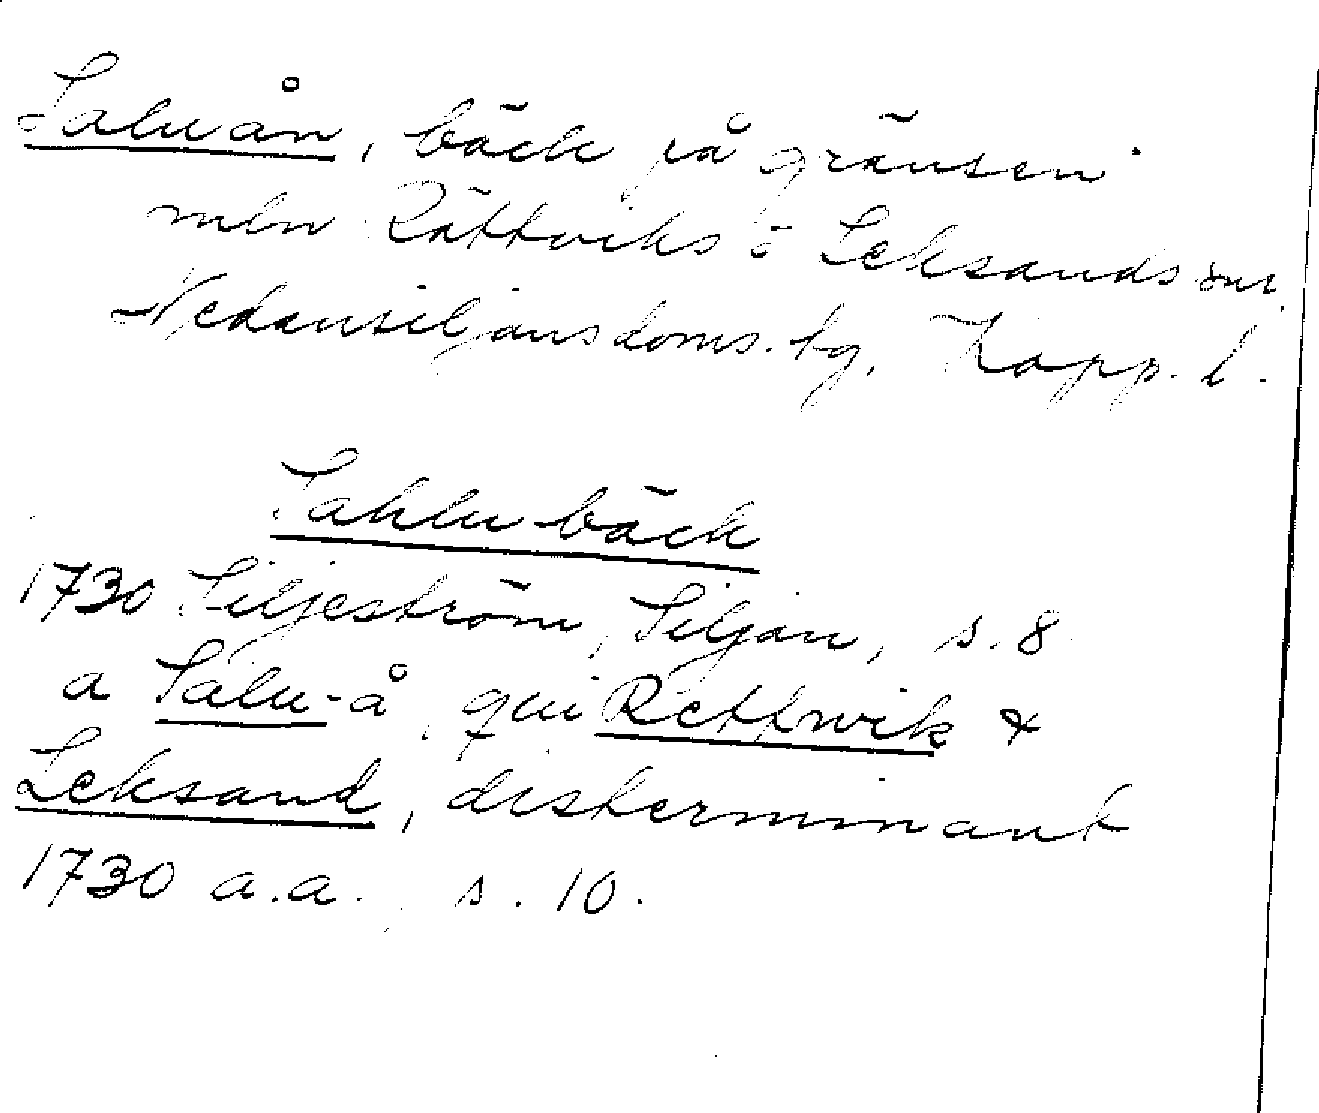 Saluån, bäck på gränsen
mln Rättviks o Leksands snr.
Nedansiljans doms. tg, Kopp. l.
Sahlu bäck
1730 Siljeström, Siljan, s. 8
a Salu-å, qui Rettwik &
Leksand, disterminant
1730 a.a. s. 10.